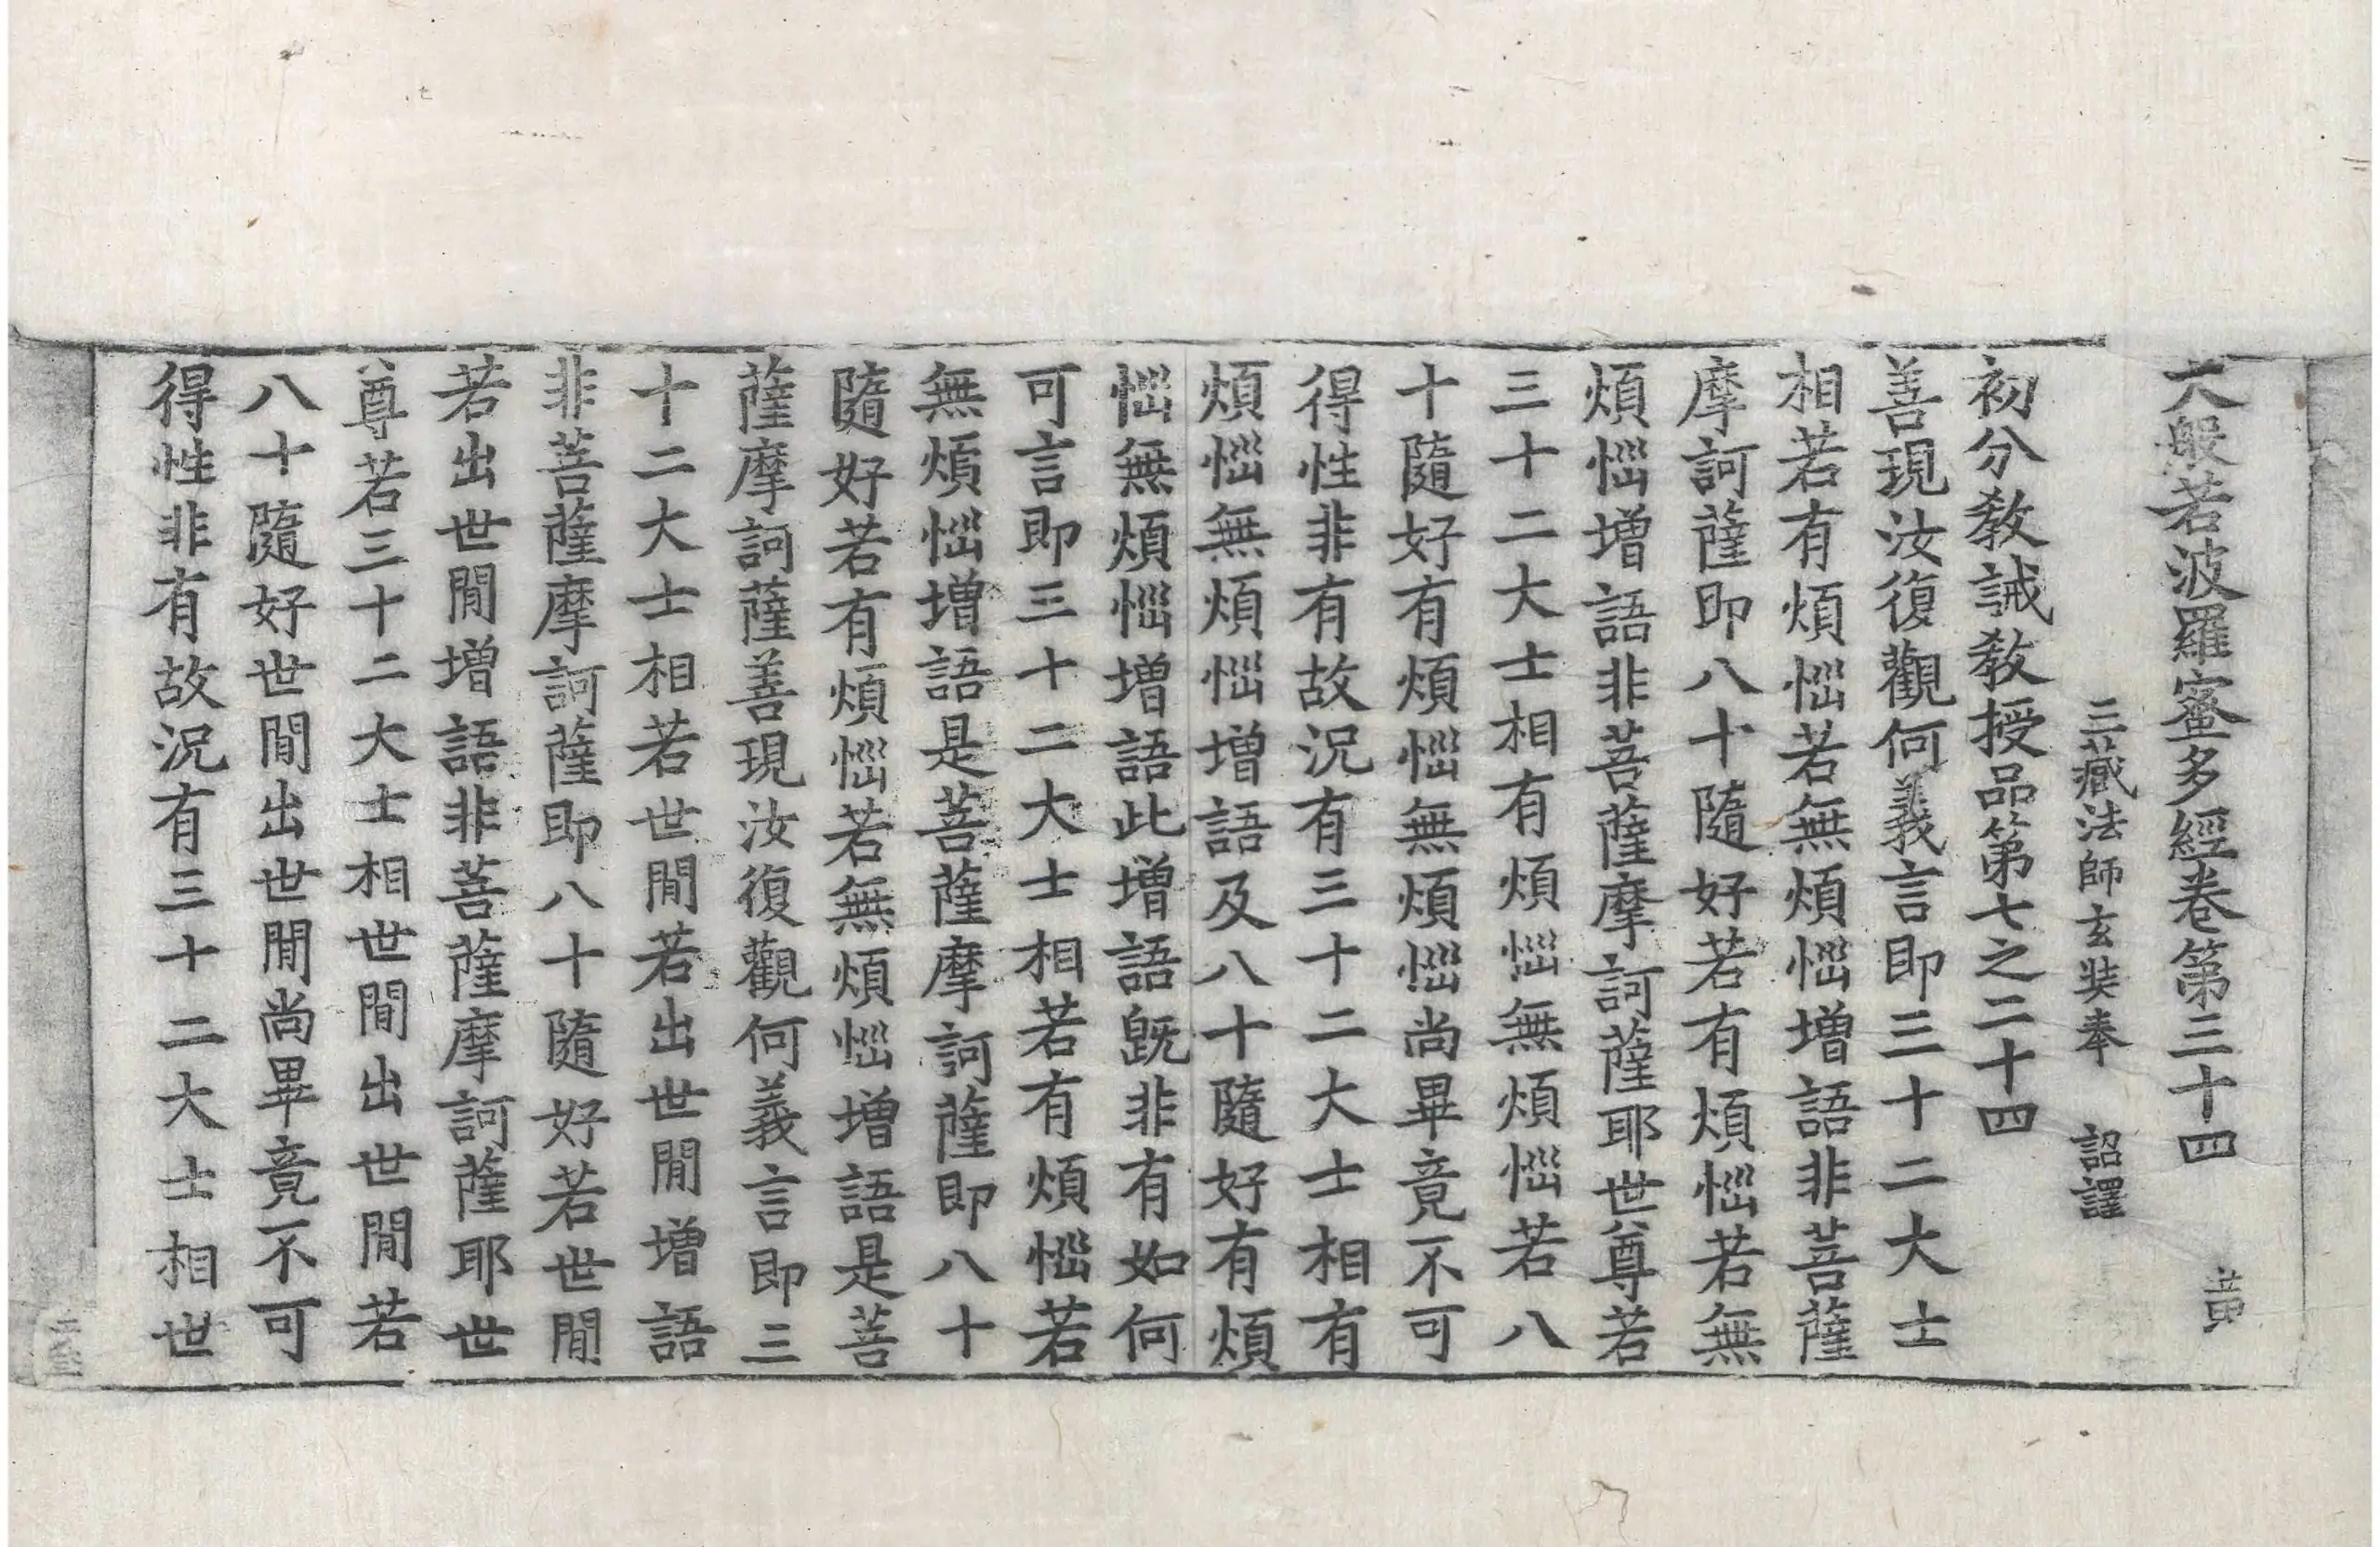 大般若波羅蜜多經卷第三十四 黄
三藏法師玄奘奉 詔譯
初分教誡教授品第七之二十四
善現汝復觀何義言即三十二大士
相若有煩惱若無煩惱增語非菩薩
摩訶薩即八十隨好若有煩惱若無
煩惱增語非菩薩摩訶薩耶世尊若
三十二大士相有煩惱無煩惱若八
十隨好有煩惱無煩惱尚畢竟不可
得性非有故況有三十二大士相有
煩惱無煩惱增語及八十隨好有煩
惱無煩惱增語此增語旣非有如何
可言即三十二大士相若有煩惱若
無煩惱增語是菩薩摩訶薩即八十
隨好若有煩惱若無煩惱增語是菩
薩摩訶薩善現汝復觀何義言即三
十二大士相若世間若出世間增語
非菩薩摩訶薩即八十隨好若世間
若出世間增語非菩薩摩訶薩耶世
尊若三十二大士相世間出世間若
八十隨好世間出世間尚畢竟不可
得性非有故況有三十二大士相世